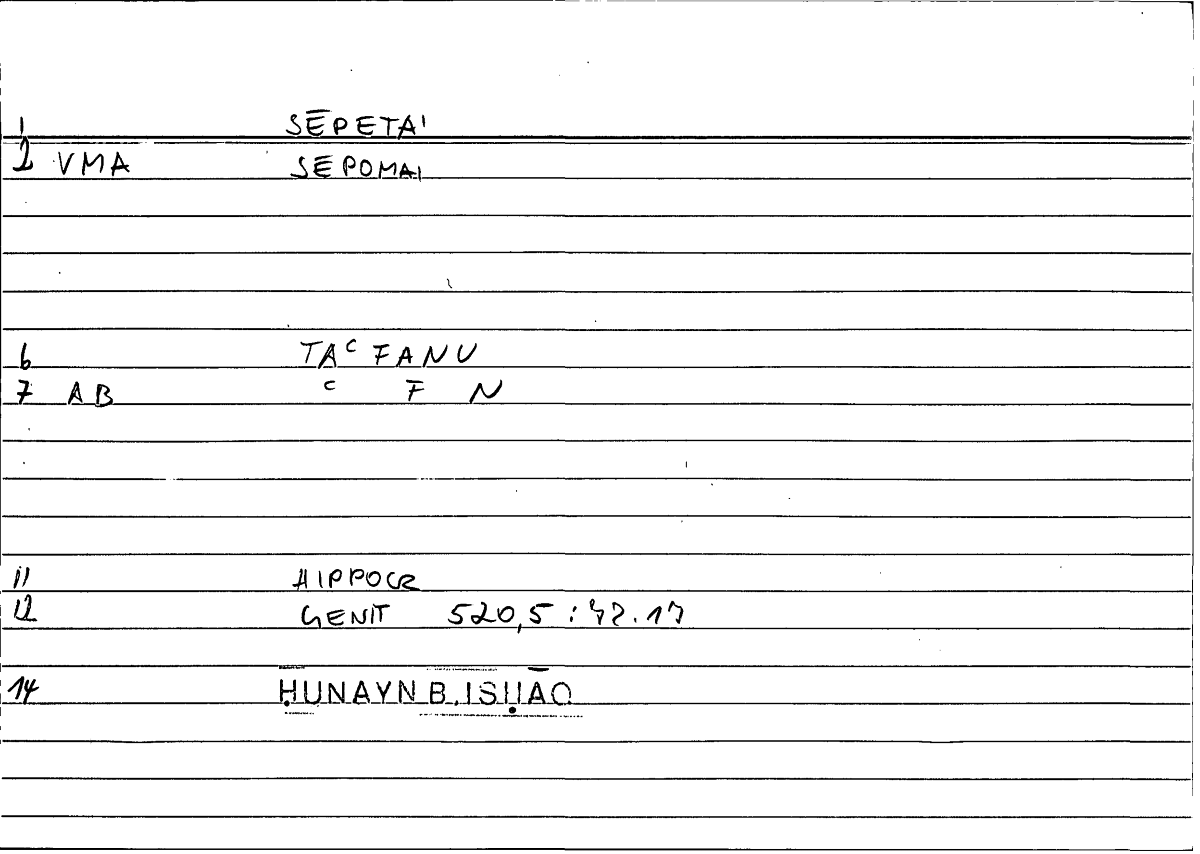 1 SĒPETAI
2 VMA SĒPOMAI
6 TAᶜFANU
7 AB ᶜ F N
11 HIPPOCR
12 GENIT 520,5 : 42.17
14 ḤUNAYN B. ISḤĀQ